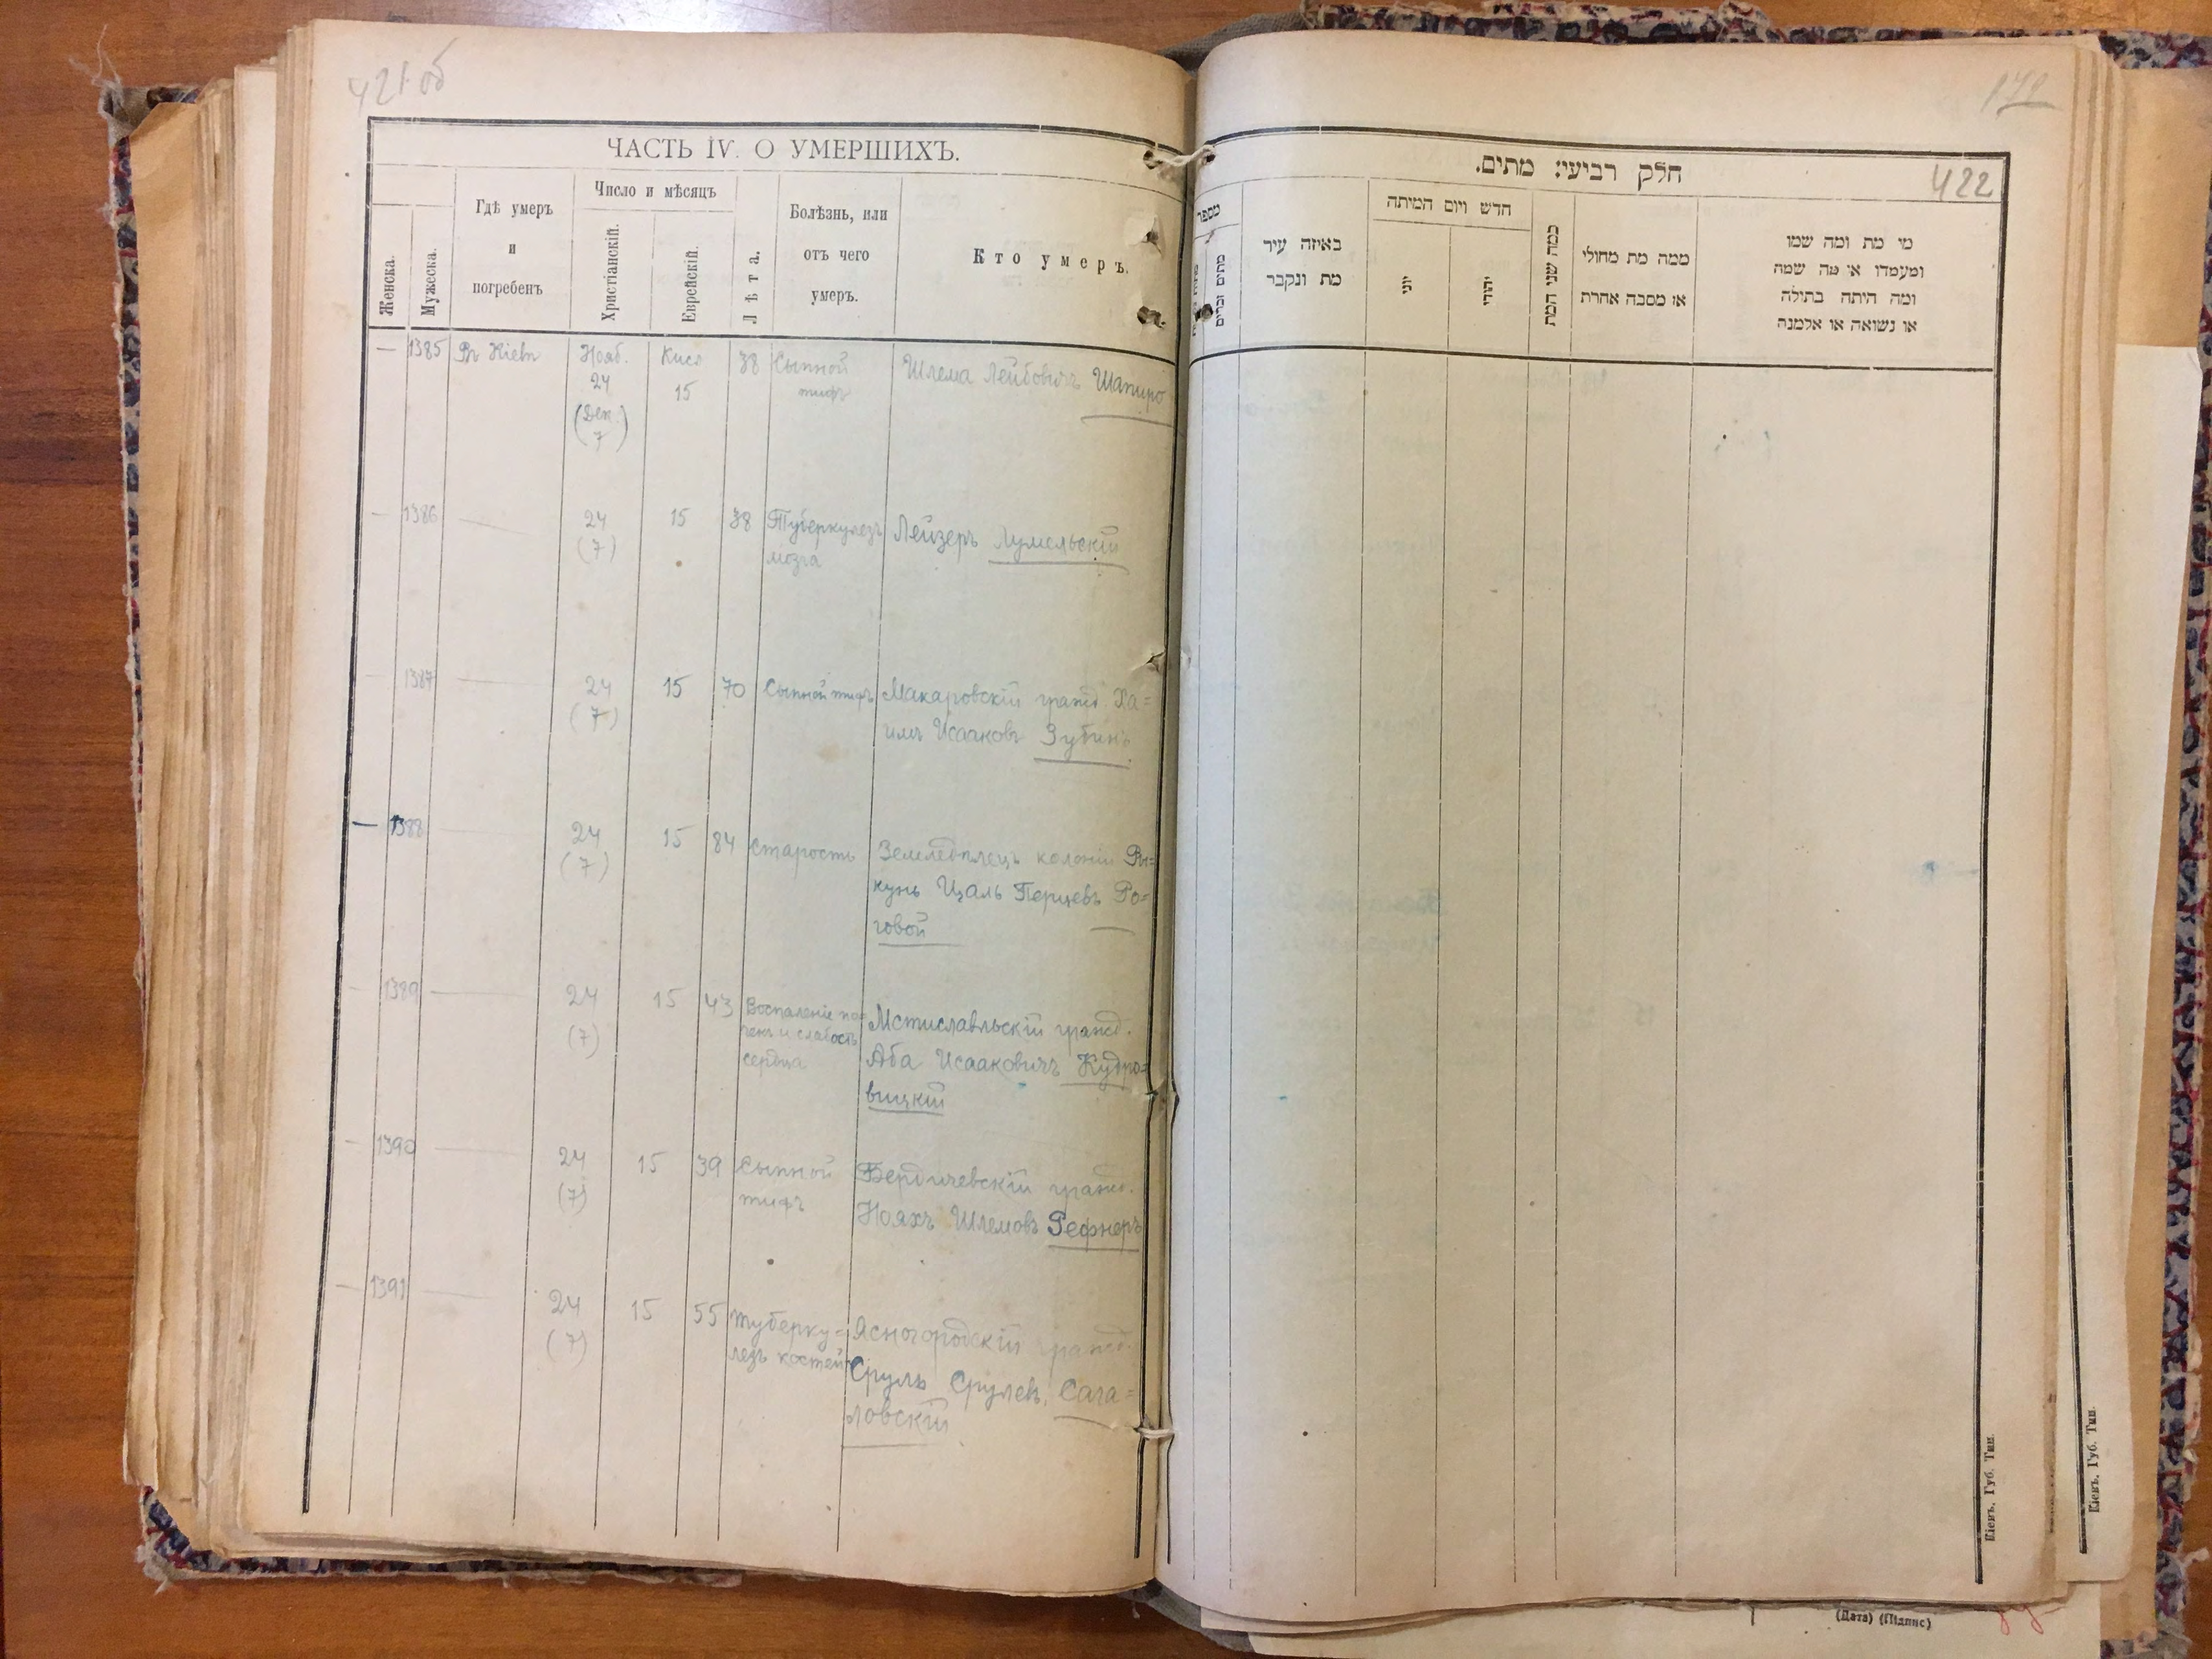 421 об
ЧАСТЬ IV. О УМЕРШИХЪ.
Женска.
Мужеска.
Гдѣ умеръ
и
погребенъ
Число и мѣсяцъ
Христіанскій.
Еврейскій.
Лѣта.
Болѣзнь, или
отъ чего
умеръ.
Кто умеръ.
— 1385 Въ Кіевѣ Нояб. Кисл 38 Сыпной Шлема Лейбовичъ Шапиро
24 15 тифъ
(Дек.
7)
— 1386 — 24 15 38 Туберкулезъ Лейзеръ Лумельскій
(7) мозга
1387 — 24 15 70 Сыпной тифъ Макаровскій гражд. Ха=
(7) имъ Исааковъ Зубинъ
— 1388 — 24 15 84 Старость Земледѣлецъ колоніи Ры=
(7) кунь Цаль Перцевъ Ро=
говой
— 1389 — 24 15 43 Воспаленіе по= Мстиславльскій гражд.
(7) чекъ и слабость Аба Исааковичъ Кудро=
сердца вицкій
— 1390 — 24 15 39 Сыпной Бердичевскій гражд.
(7) тифъ Нояхъ Шлемовъ Рефнеръ
— 1391 — 24 15 55 Туберку= Ясногородскій гражд.
(7) лезъ костей Сруль Срулев. Сага=
ловскій
422
חלק רביעי: מתים.
מספר
מתים זכרים
באיזה עיר
מת ונקבר
חדש ויום המיתה
יוני
יהודי
כמה שני המת
ממה מת מחולי
או מסבה אחרת
מי מת ומה שמו
ומעמדו או מה שמה
ומה היתה בתולה
או נשואה או אלמנה
Кіевъ, Губ. Тип.
Кіевъ, Губ. Тип.
(Дата) (Підпис)